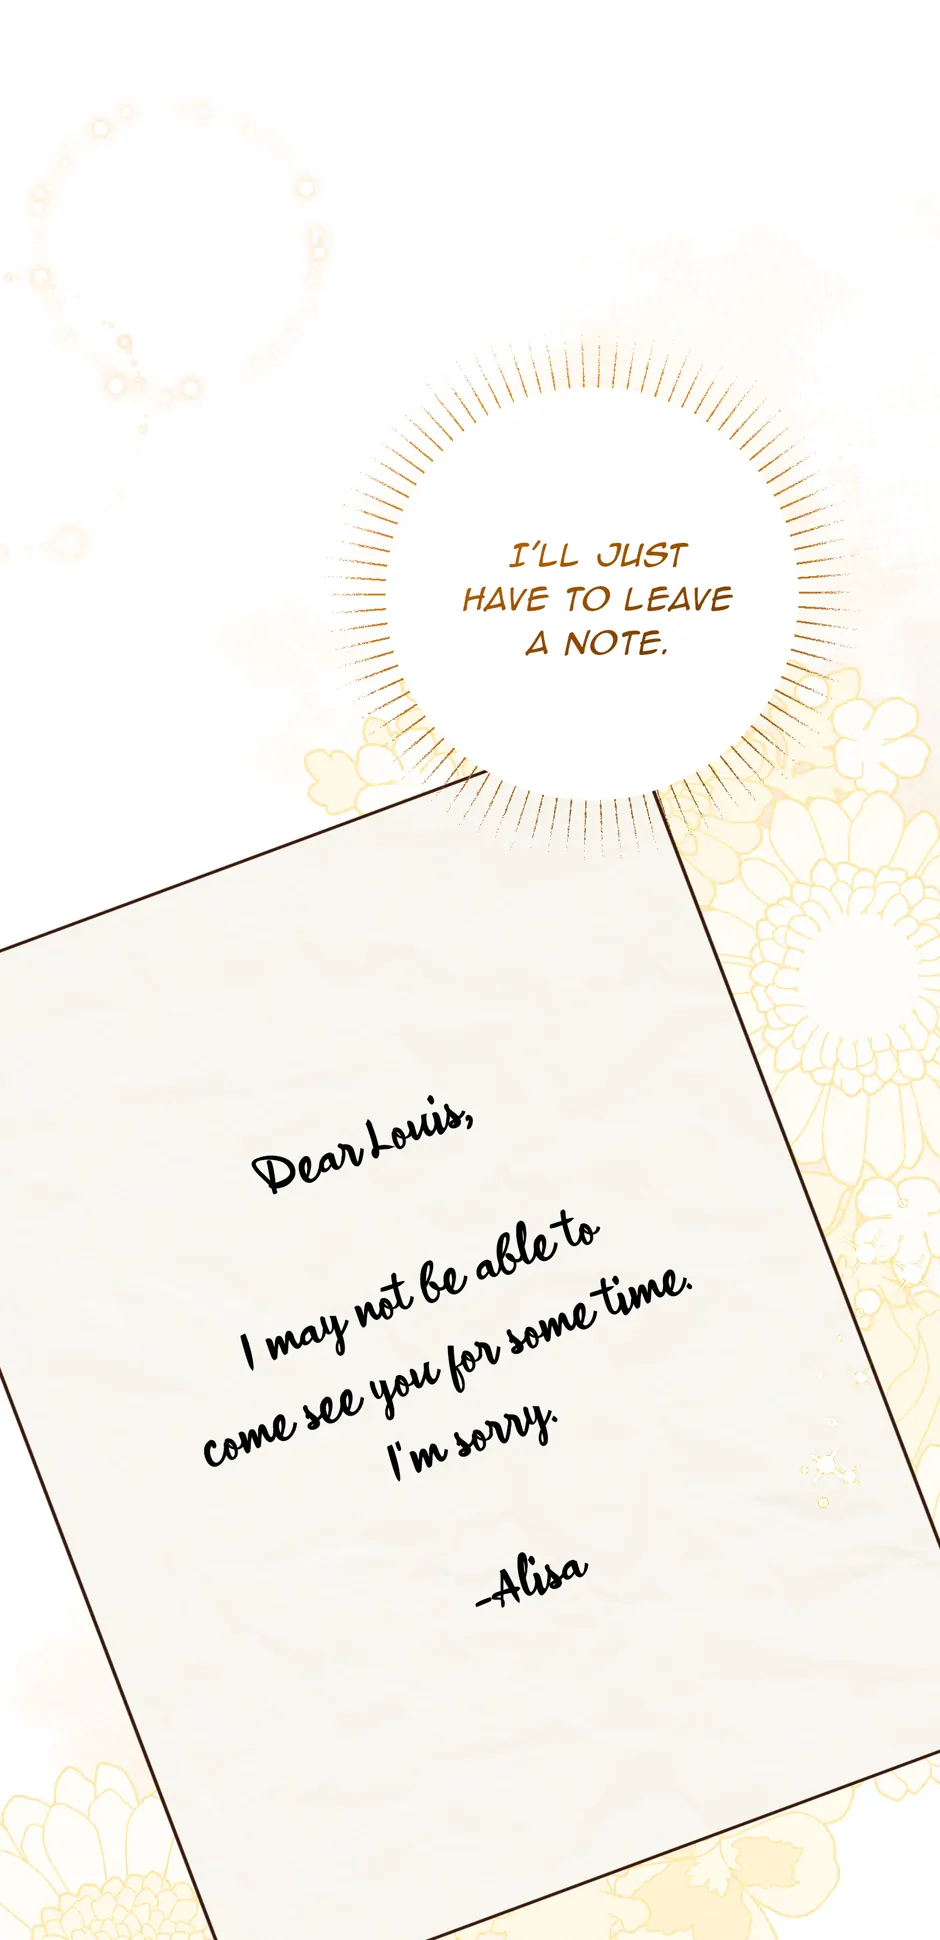 I'LL JUST
HAVE TO LEAVE
A NOTE.
Dear Louis,
I may not be able to
come see you for some time.
I'm sorry.
-Alisa